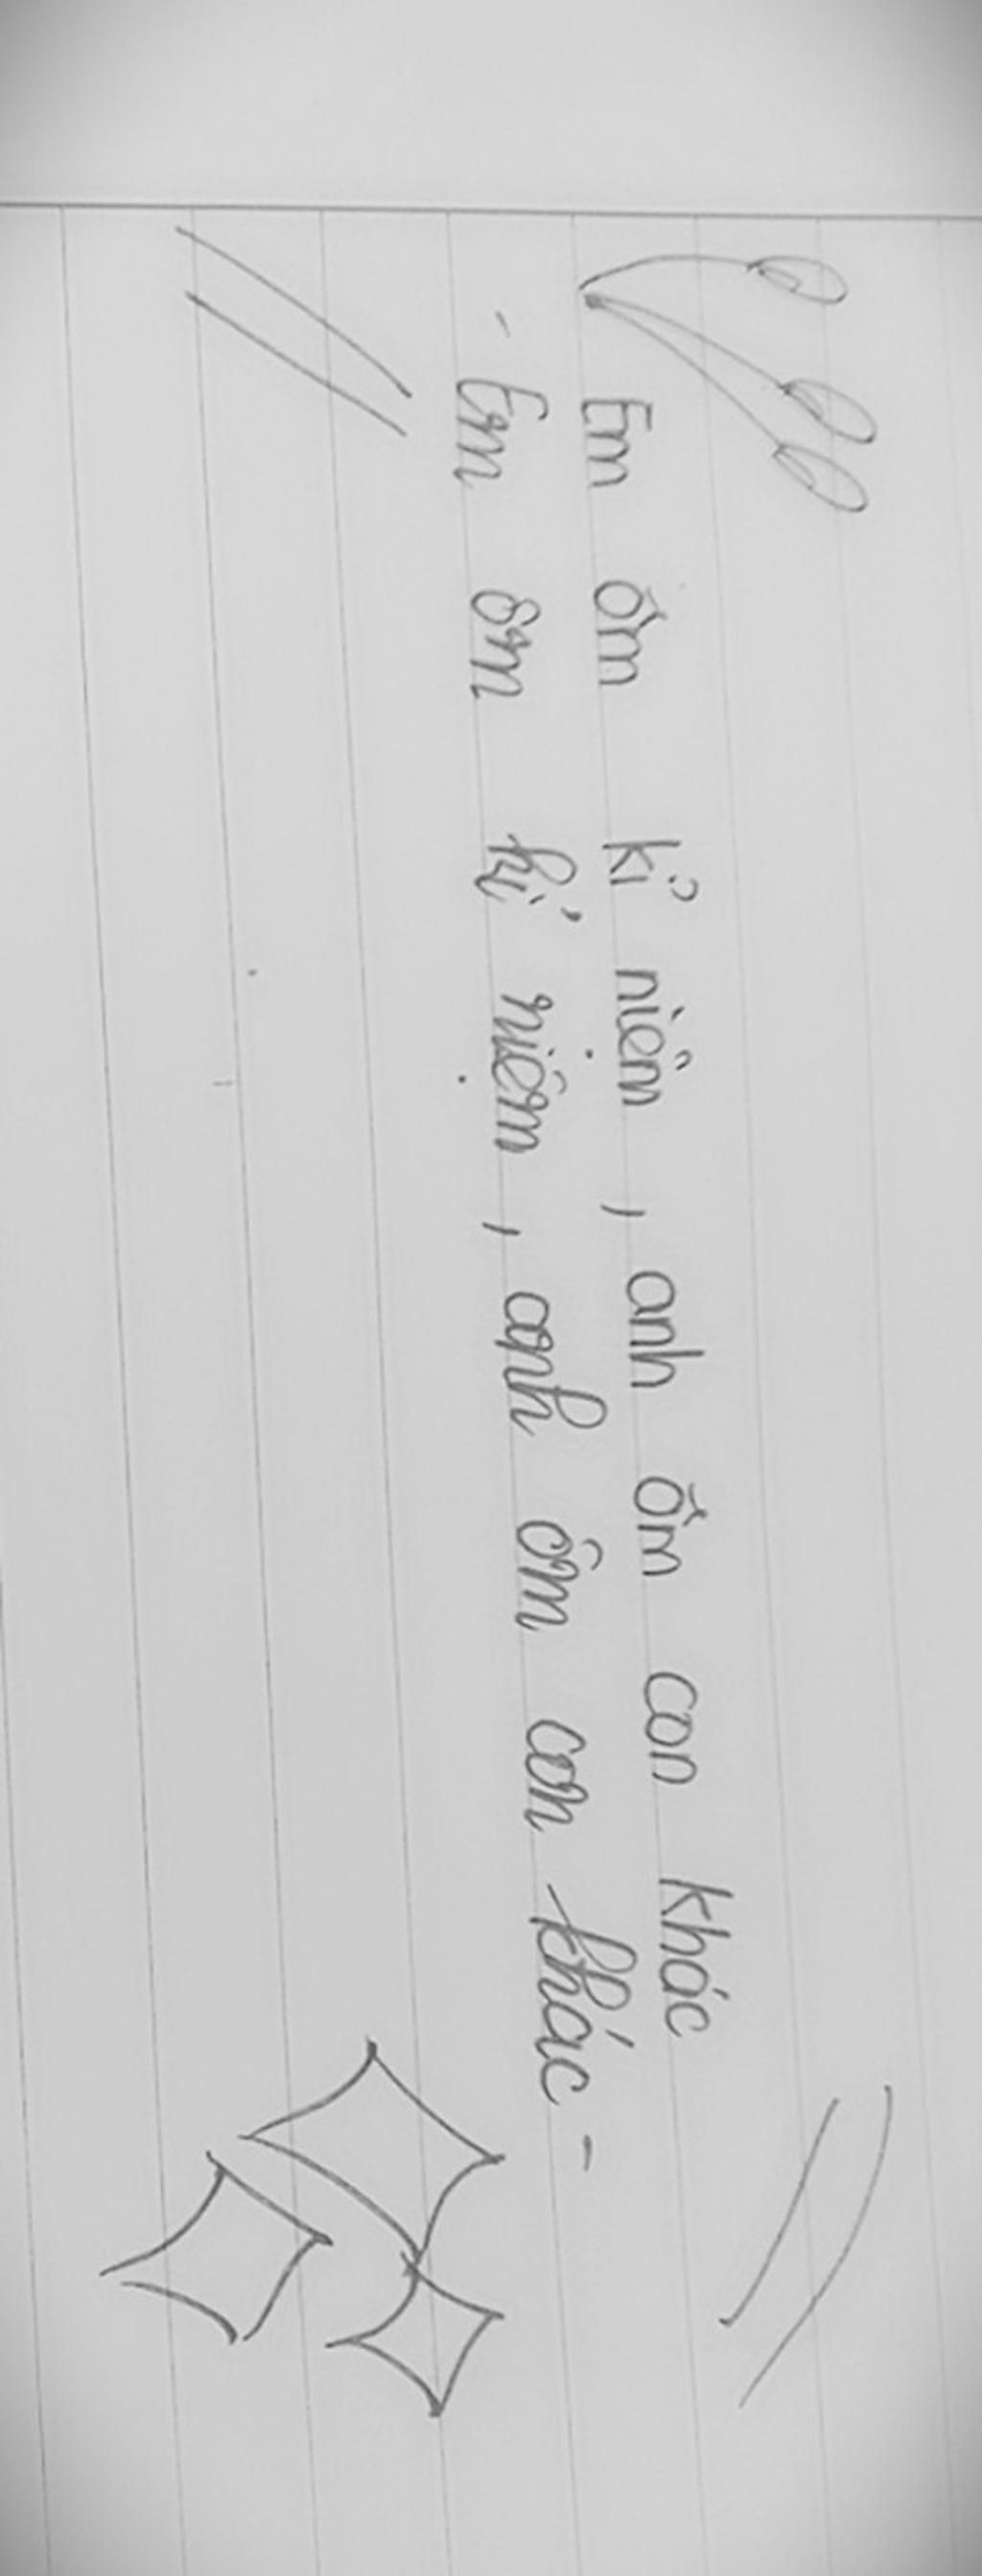 Em ôm kỉ niệm , anh ôm con khác
- Em ôm kỉ niệm , anh ôm con khác -